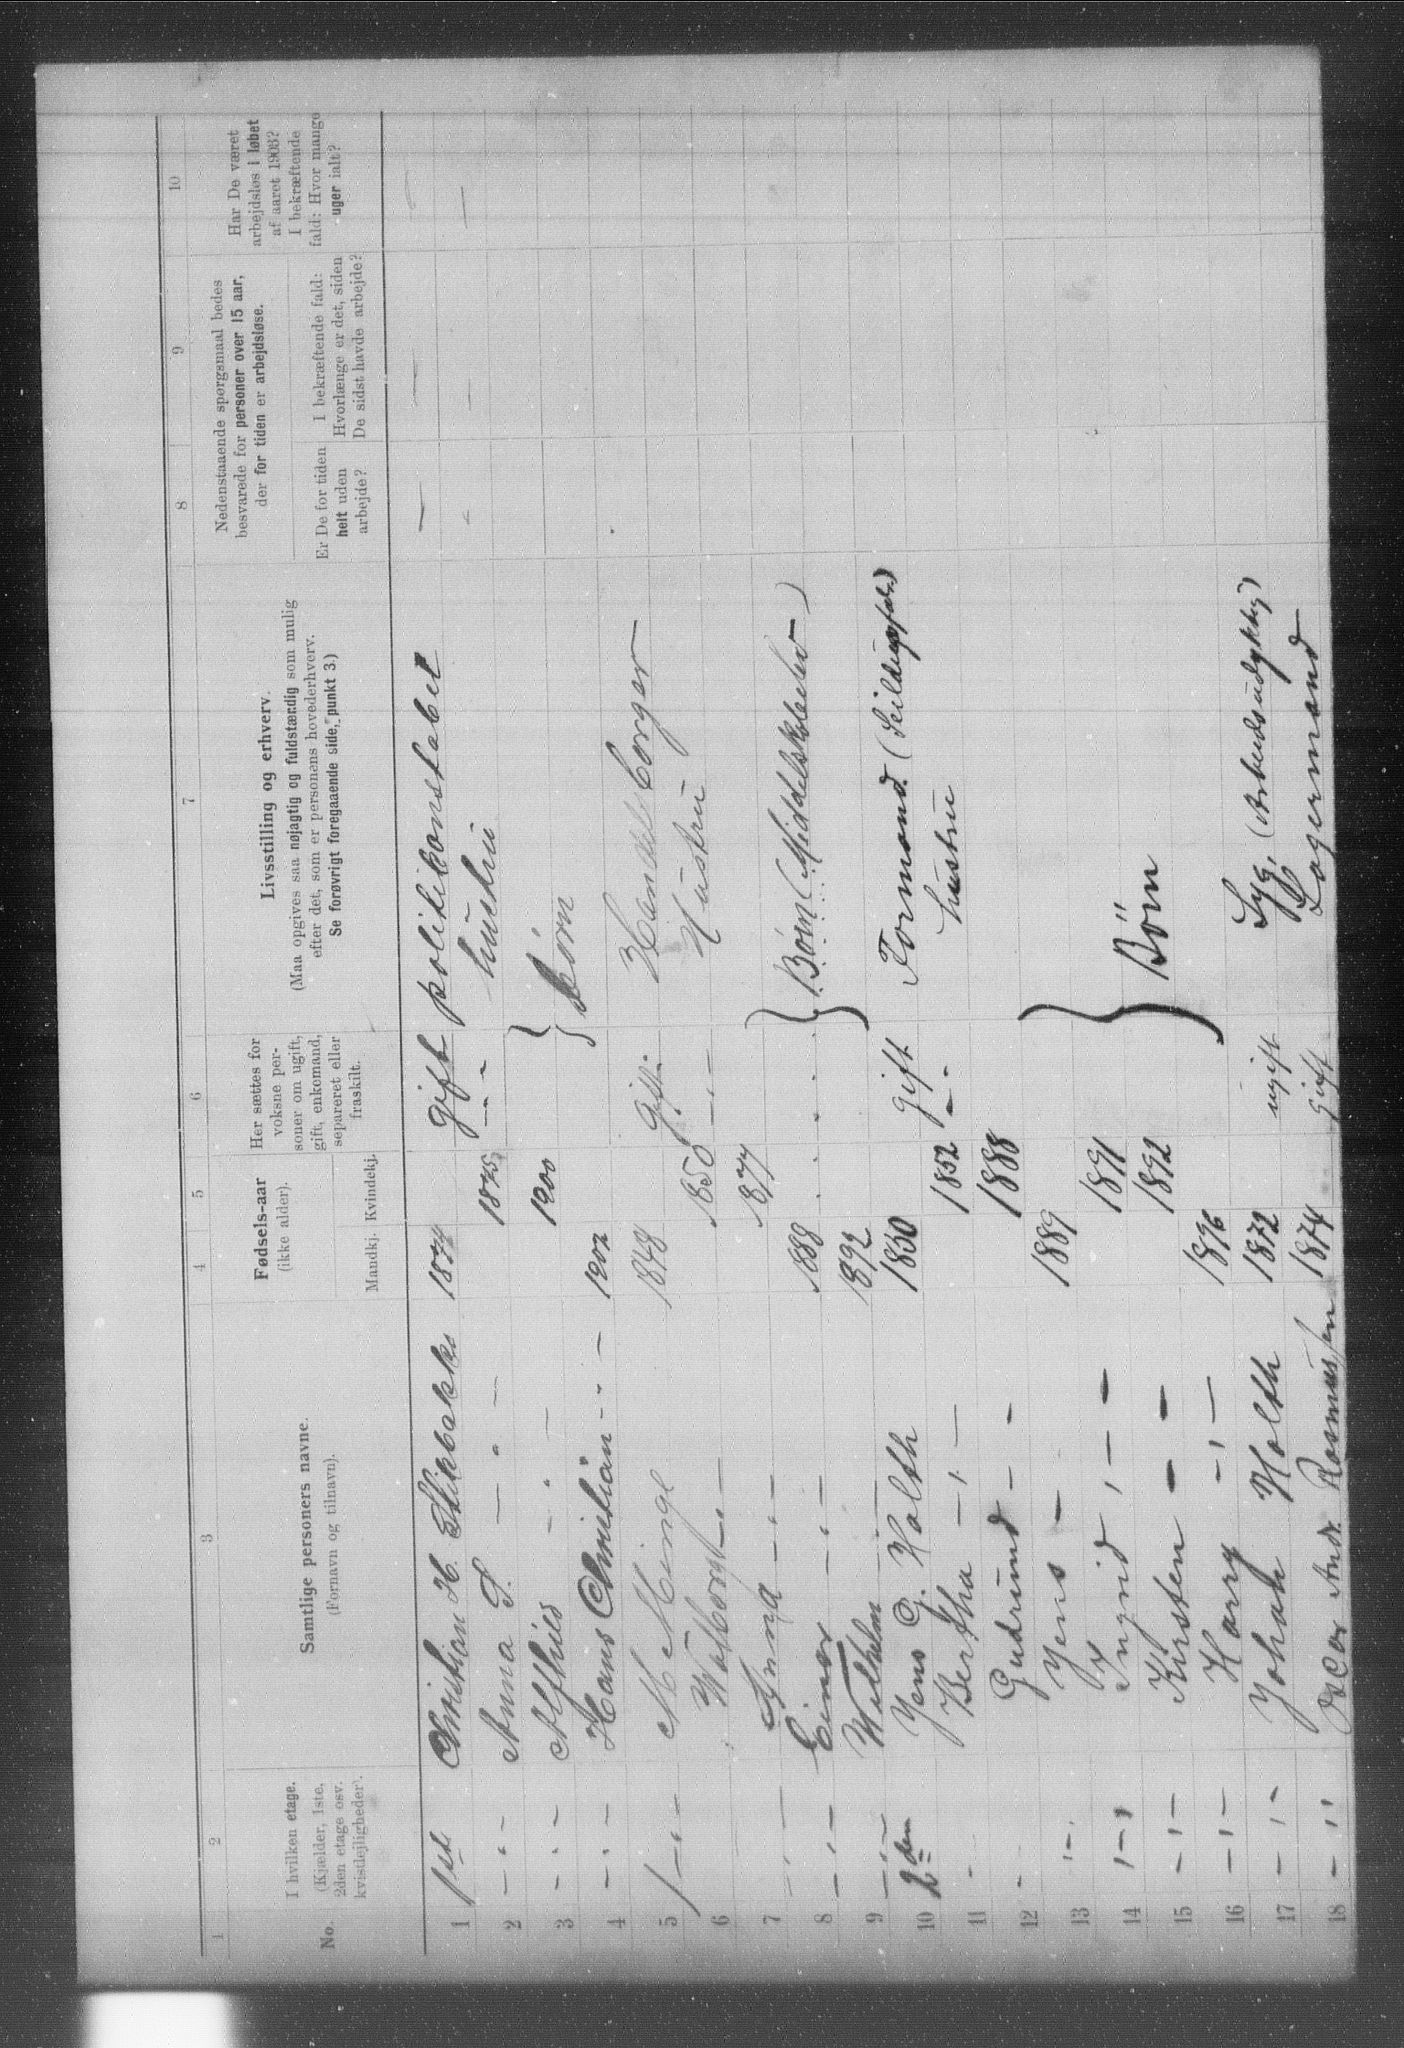 1 2 3 4 5 6 7 8 9 10
No.
I hvilken etage.
(Kjælder, 1ste,
2den etage osv.
kvistlejligheder).
Samtlige personers navne.
(Fornavn og tilnavn).
Fødsels-aar
(ikke alder).
Mandkj. Kvindekj.
Her sættes for
voksne per-
soner om ugift,
gift, enkemand,
separeret eller
fraskilt.
Livsstilling og erhverv.
(Maa opgives saa nøjagtig og fuldstændig som mulig
efter det, som er personens hovederhverv.
Se forøvrigt foregaaende side, punkt 3.)
Nedenstaaende spørgsmaal bedes
besvarede for personer over 15 aar,
der for tiden er arbejdsløse.
Er De for tiden
helt uden
arbejde?
I bekræftende fald:
Hvorlænge er det, siden
De sidst havde arbejde?
Har De været
arbejdsløs i løbet
af aaret 1903?
I bekræftende
fald: Hvor mange
uger ialt?
1 1ste Christian H. 1874 gift politikonstabel — — —
2 — " — Anna S. — " — 1875 — " — hustru - — —
3 — " — Alfhild — " — 1900 } börn
4 — " — Hans Christian — " — 1902
5 1 — " — M Minge 1848 Gift. Handelsborger
6 Walborg — " — 1850 — " — Hustru
7 — " — Anna — " — 1877 } Börn (Middelskoleelev)
8 — " — Einar — " — 1888
9 — " — Wilhelm — " — 1892
10 2den Jens G. Holth 1850 gift Formand.
11 - Bertha — " — 1852 — " — hustru
12 - Gudrund — — 1888 } Börn
13 — " — Jens — 1889
14 — " — Ingrid " — — 1891
15 — " — Kirsten — — 1892
16 — " — Harry — " — 1896
17 — " — Johan Holth 1872 ugift Syg, (Arbeidsudygtig)
18 — " Oscar Andr. Rasmussen 1874 gift Lagermand